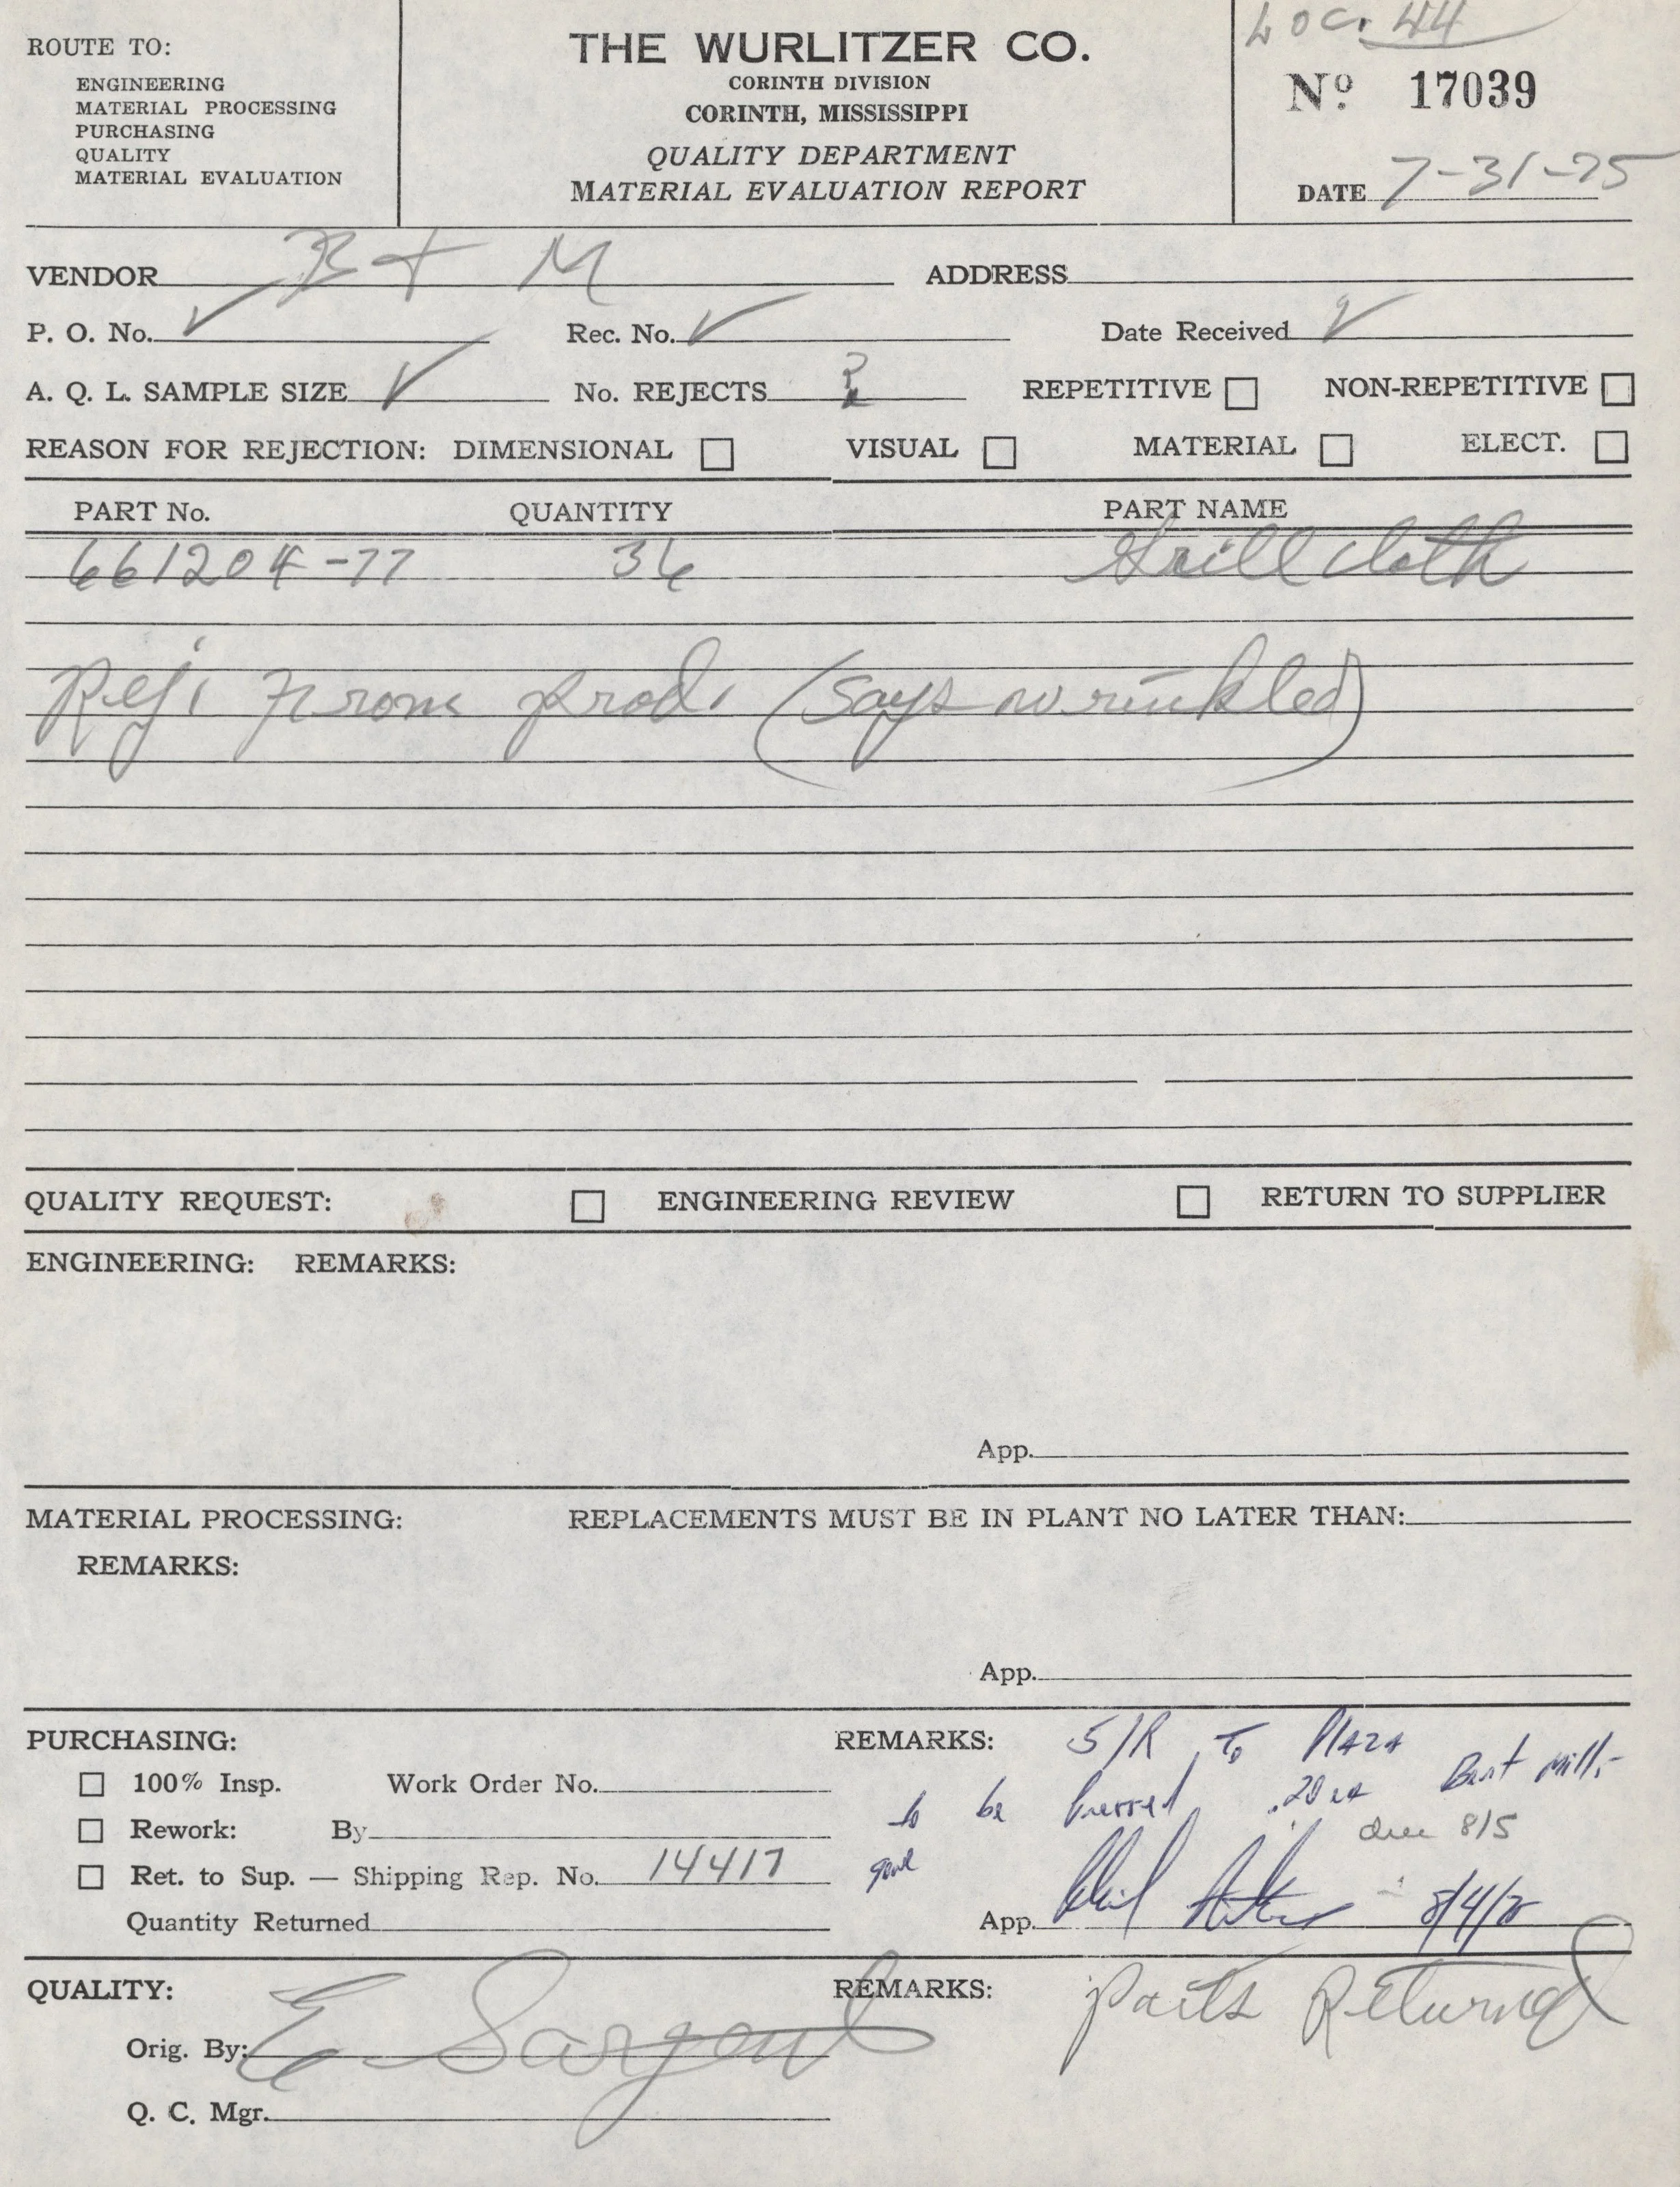 ROUTE TO:
ENGINEERING
MATERIAL PROCESSING
PURCHASING
QUALITY
MATERIAL EVALUATION
THE WURLITZER CO.
CORINTH DIVISION
CORINTH, MISSISSIPPI
QUALITY DEPARTMENT
MATERIAL EVALUATION REPORT
Loc. 44
No. 17039
DATE 7-31-75
VENDOR B + M ADDRESS
P. O. No. ✓ Rec. No. ✓ Date Received
A. Q. L. SAMPLE SIZE ✓ No. REJECTS REPETITIVE ☐ NON-REPETITIVE ☐
REASON FOR REJECTION: DIMENSIONAL ☐ VISUAL ☐ MATERIAL ☐ ELECT. ☐
PART No. QUANTITY PART NAME
661204-77 36 Grill cloth
Rej. From prod. (says wrinkled)
QUALITY REQUEST: ☐ ENGINEERING REVIEW ☐ RETURN TO SUPPLIER
ENGINEERING: REMARKS:
App.
MATERIAL PROCESSING: REPLACEMENTS MUST BE IN PLANT NO LATER THAN:
REMARKS:
App.
PURCHASING: REMARKS: S/R to Plaza
☐ 100% Insp. Work Order No. to be pressed .20 ea
☐ Rework: By due 8/5
☐ Ret. to Sup. — Shipping Rep. No. 14417
Quantity Returned App. 8/4/75
QUALITY: REMARKS: parts Returned
Orig. By: E Sargent
Q. C. Mgr.